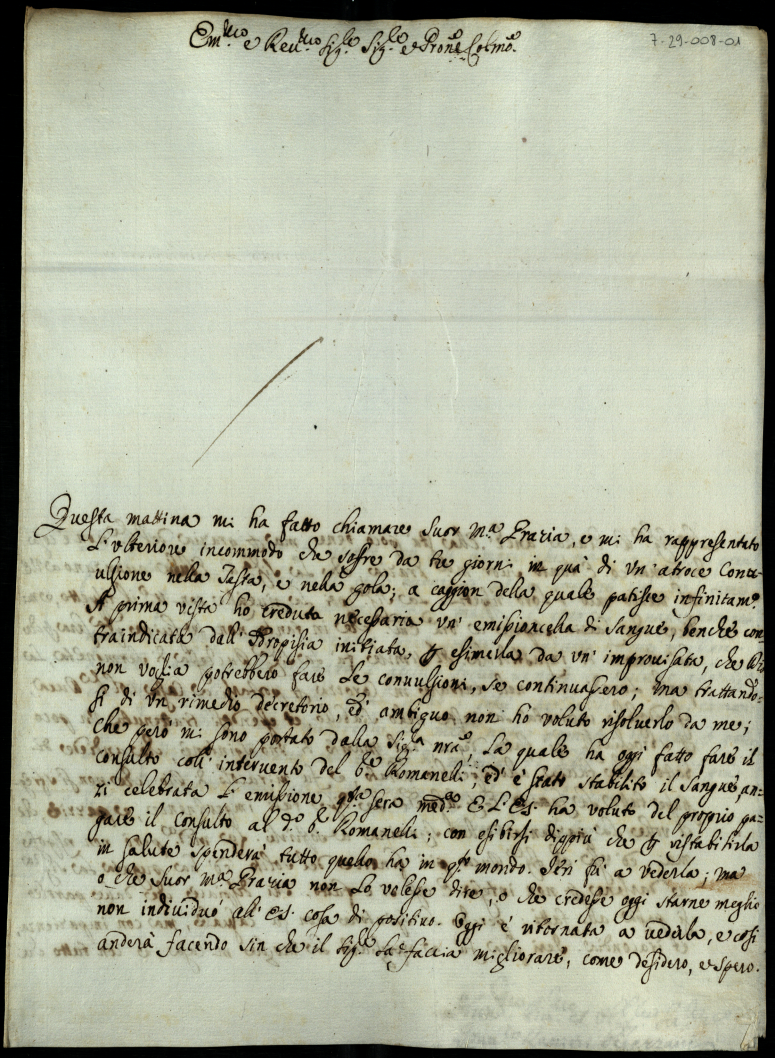 Em.mo e Rev.mo Sig.re Sig.re e Pron.e Colmo.
7-29-008-01
Questa mattina mi ha fatto chiamare Suor M.a Grazia, e mi ha rappresentato
l'ulteriore incommodo che soffre da tre giorni in quà di un'atroce Conv-
ulsione nella Testa, e nella gola; a caggion della quale patisce infinitam.e
A prima vista ho creduta necessaria un'emissioncella di Sangue, benche con
traindicata dall'Idropisia iniziata, p esimerla da un'improvisata, che
non voglia potrebbero fare le convulsioni, se continuassero; ma trattando-
si di un rimedio decretorio, ed'ambiguo non hò voluto risolverlo da me;
che però mi sono portato dalla Sig.ra nrã, la quale ha oggi fatto fare il
consulto coll'intervento del Romanelli, ed'è stato stabilito il Sangue, an-
zi celebrata l'emissione q.ta sera med.a E L'Es. ha voluto del proprio pa-
gare il consulto al d.o Romanelli; con esibirsi dippiù che p ristabilirla
in salute spenderà tutto quello ha in q.to mondo. Jeri fù a vederla; ma
o che Suor M.a Grazia non lo volesse dire, o che credesse oggi starne meglio
non individuò all'Es. cosa di positivo. Oggi è ritornata a vederla, e così
anderà facendo sin che il Sig.re la faccia migliorare, come desidero, e spero.